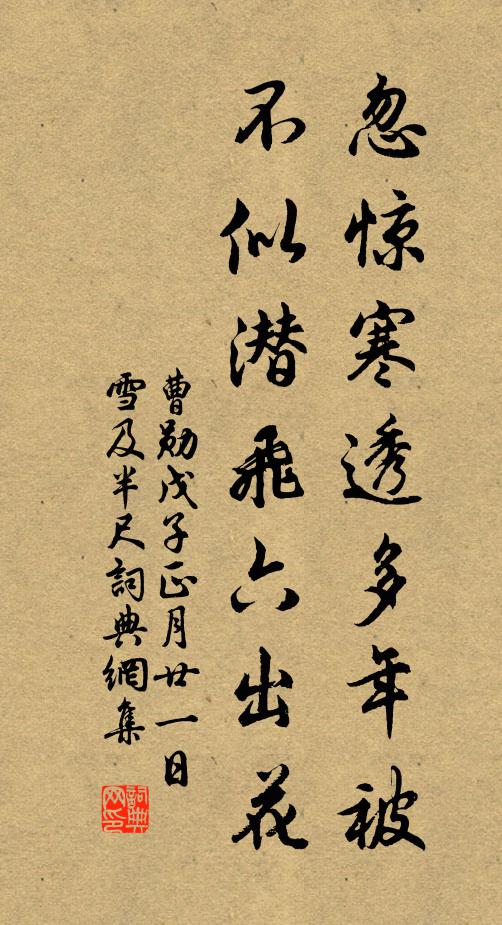 忽惊寒透多年被
不似潜飛六出花
曹勛戊子正月廿一日
雪及半尺詞典網集
詞典
网印